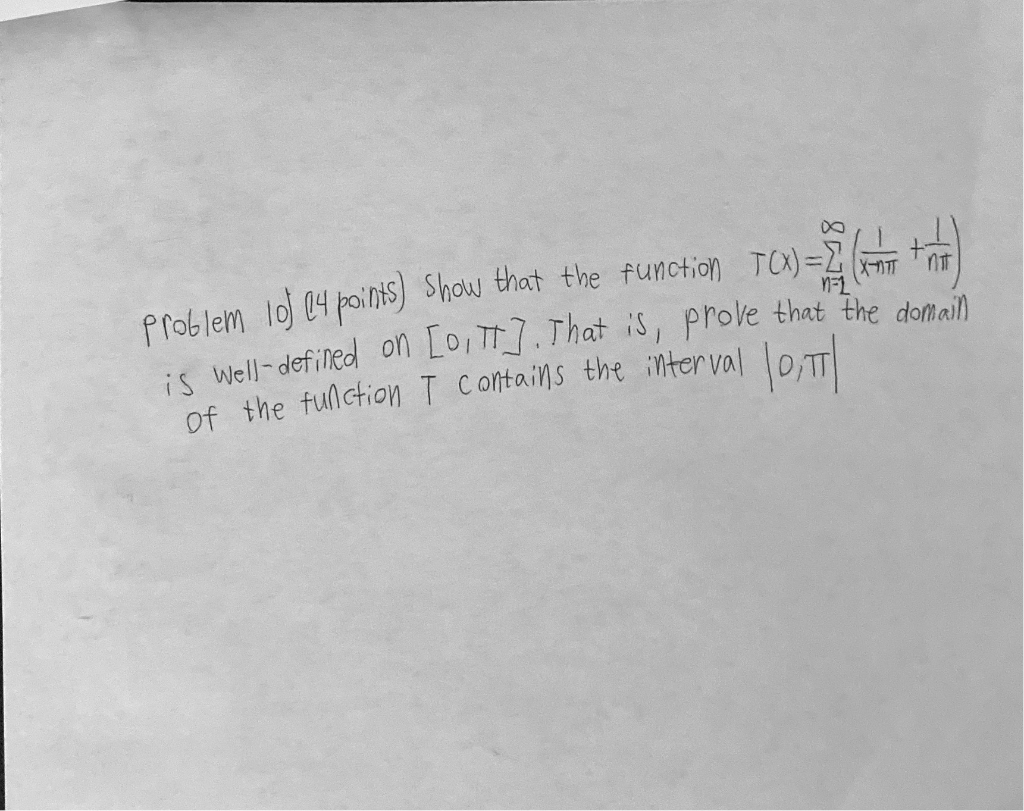 problem 10) (14 points) Show that the function T(x)=∑_{n=2}^{∞} (1/(x-nπ) + 1/(nπ))
is well-defined on [0,π]. That is, prove that the domain
of the function T contains the interval |0,π|